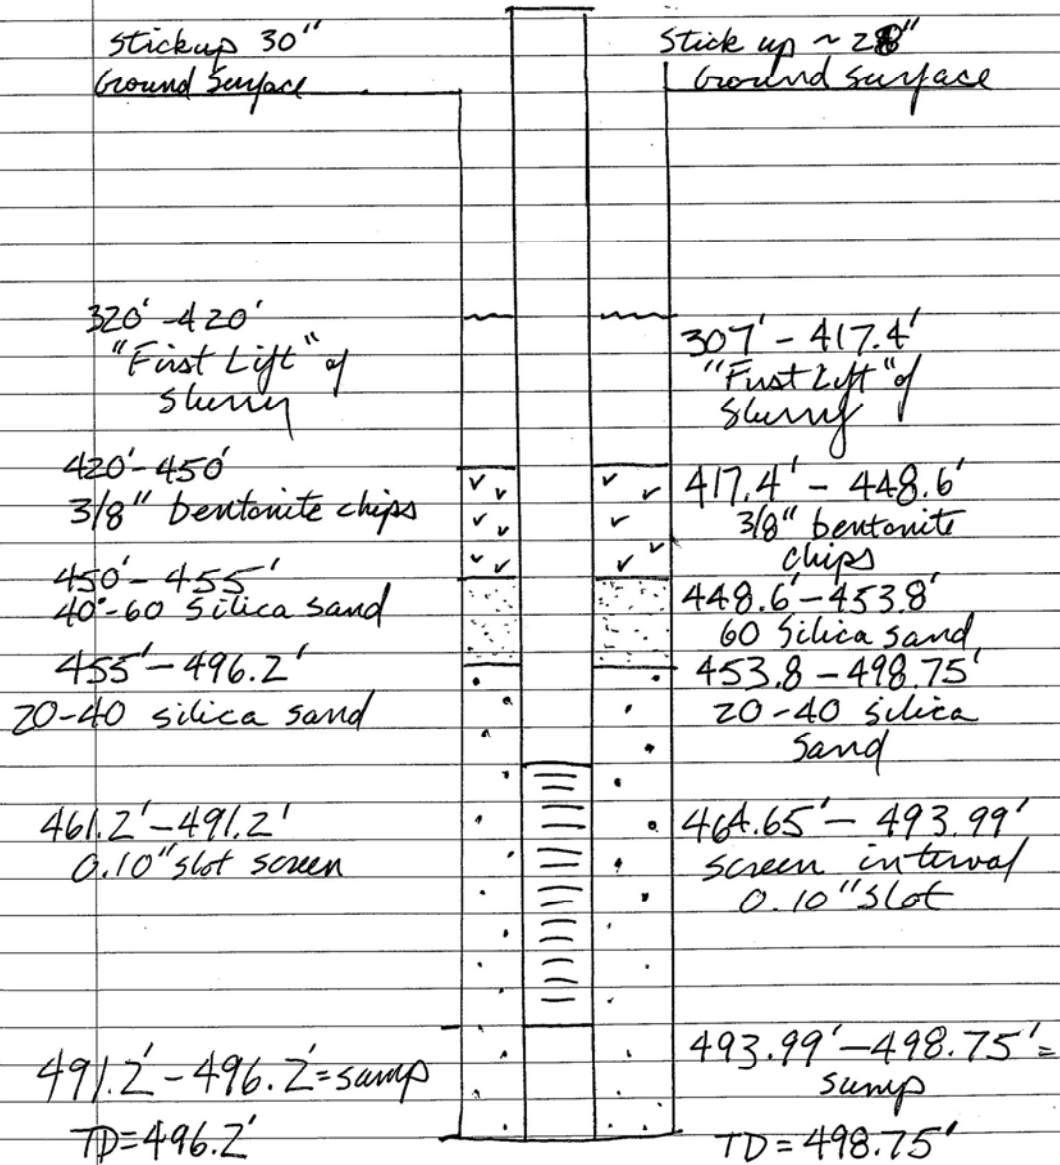 Stickup 30"
Ground Surface
320'-420'
"First Lift" of
Slurry
420'-450'
3/8" bentonite chips
450'-455'
40-60 Silica Sand
455'-496.2'
20-40 silica sand
461.2'-491.2'
0.10" slot screen
491.2'-496.2'=sump
TD=496.2'
Stick up ~ 28"
Ground Surface
307'-417.4'
"First Lift" of
Slurry
417.4'-448.6'
3/8" bentonite
chips
448.6'-453.8'
60 Silica sand
453.8-498.75'
20-40 silica
Sand
464.65'-493.99'
screen interval
0.10" Slot
493.99'-498.75'=
sump
TD=498.75'